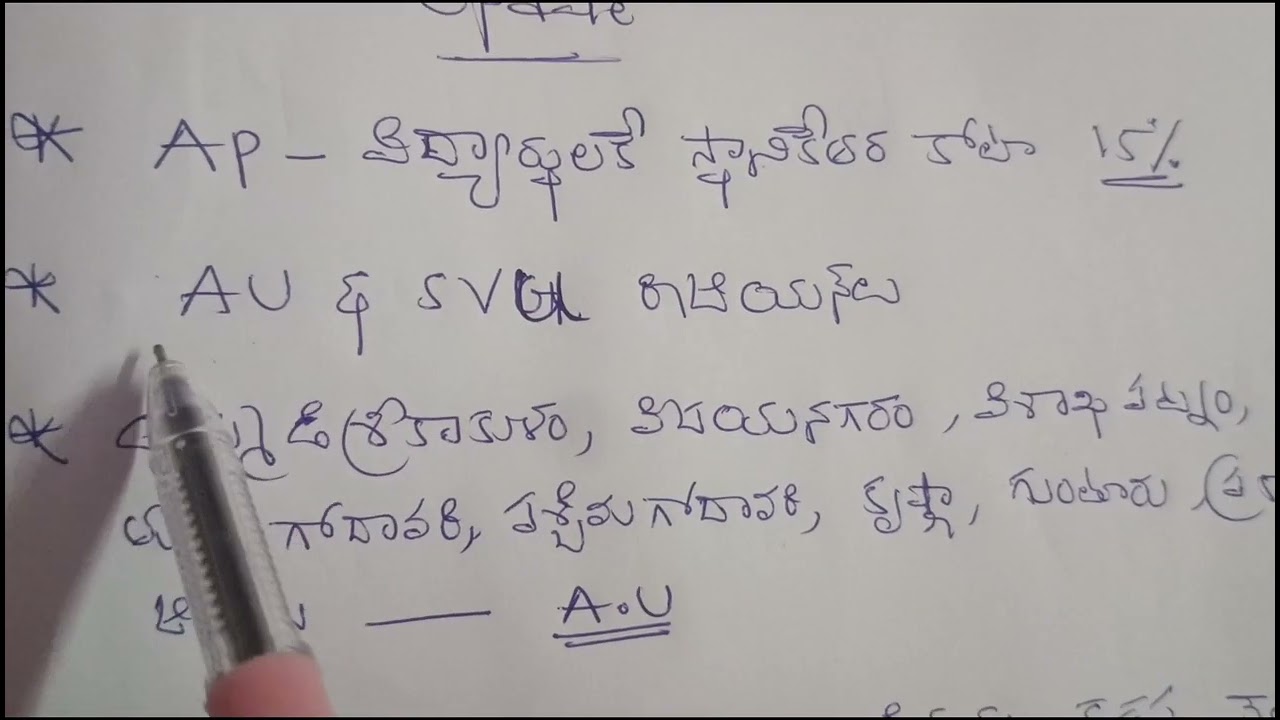 Update
* AP – విద్యార్థులకే స్థానికేతర కోటా 15%
* AU & SVU రీజియన్లు
* శ్రీకాకుళం, విజయనగరం, విశాఖపట్నం,
గోదావరి, పశ్చిమగోదావరి, కృష్ణా, గుంటూరు,
— A.U